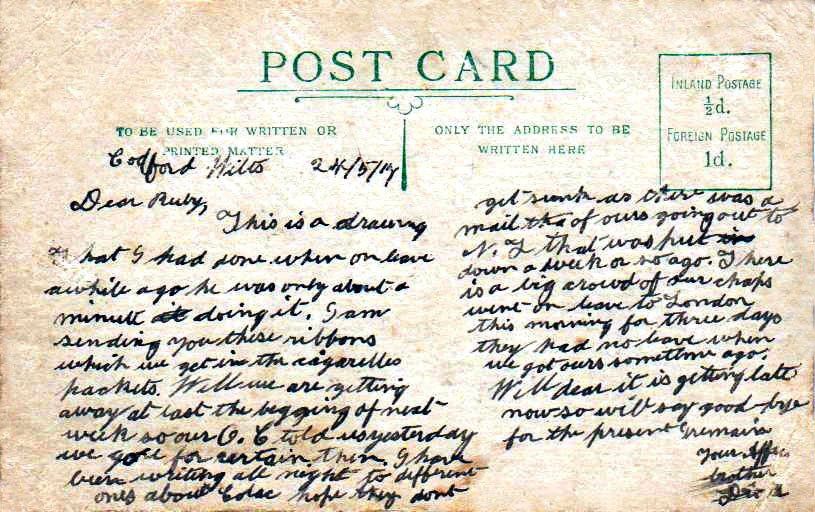 POST CARD
TO BE USED FOR WRITTEN OR
PRINTED MATTER
ONLY THE ADDRESS TO BE
WRITTEN HERE
INLAND POSTAGE
½d.
FOREIGN POSTAGE
1d.
Codford Wilts 24/5/17
Dear Ruby,
This is a drawing
that I had done when on leave
awhile ago he was only about a
minute at doing it. I am
sending you these ribbons
which we get in the cigarettes
packets. Well we are getting
away at last the begging of next
week so our O. C told us yesterday
we go for certain then. I have
been writing all night to different
ones about Colac hope they dont
get sunk as there was a
mail of ours going out to
N. Z that was put in
down a week or so ago. There
is a big crowd of our chaps
went on leave to London
this morning for three days
they had no leave when
we got ours sometime ago.
Well dear it is getting late
now so will say good-bye
for the present I remain
Your Affec
brother